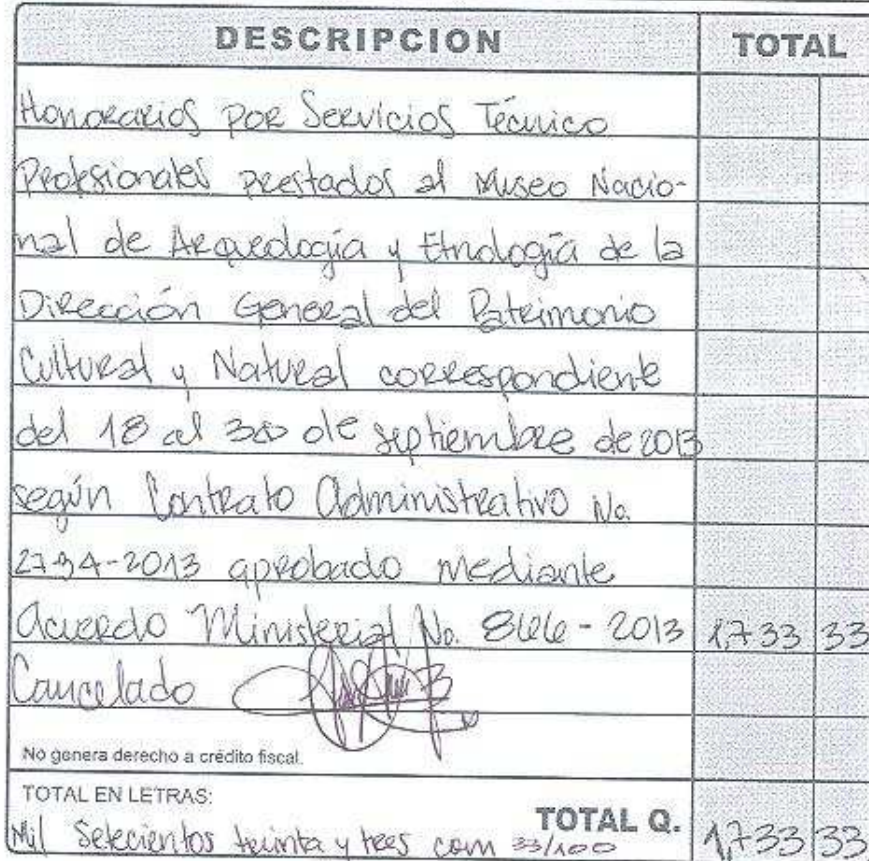 DESCRIPCION TOTAL
Honorarios por Servicios Técnico
Profesionales prestados al Museo Nacio-
nal de Arqueología y Etnología de la
Dirección General del Patrimonio
Cultural y Natural correspondiente
del 18 al 30 de septiembre de 2013
según Contrato Administrativo No.
2734-2013 aprobado mediante
Acuerdo Ministerial No. 866-2013 1,733 33
Cancelado
No genera derecho a crédito fiscal.
TOTAL EN LETRAS:
Mil Setecientos treinta y tres con 33/100 TOTAL Q. 1,733 33